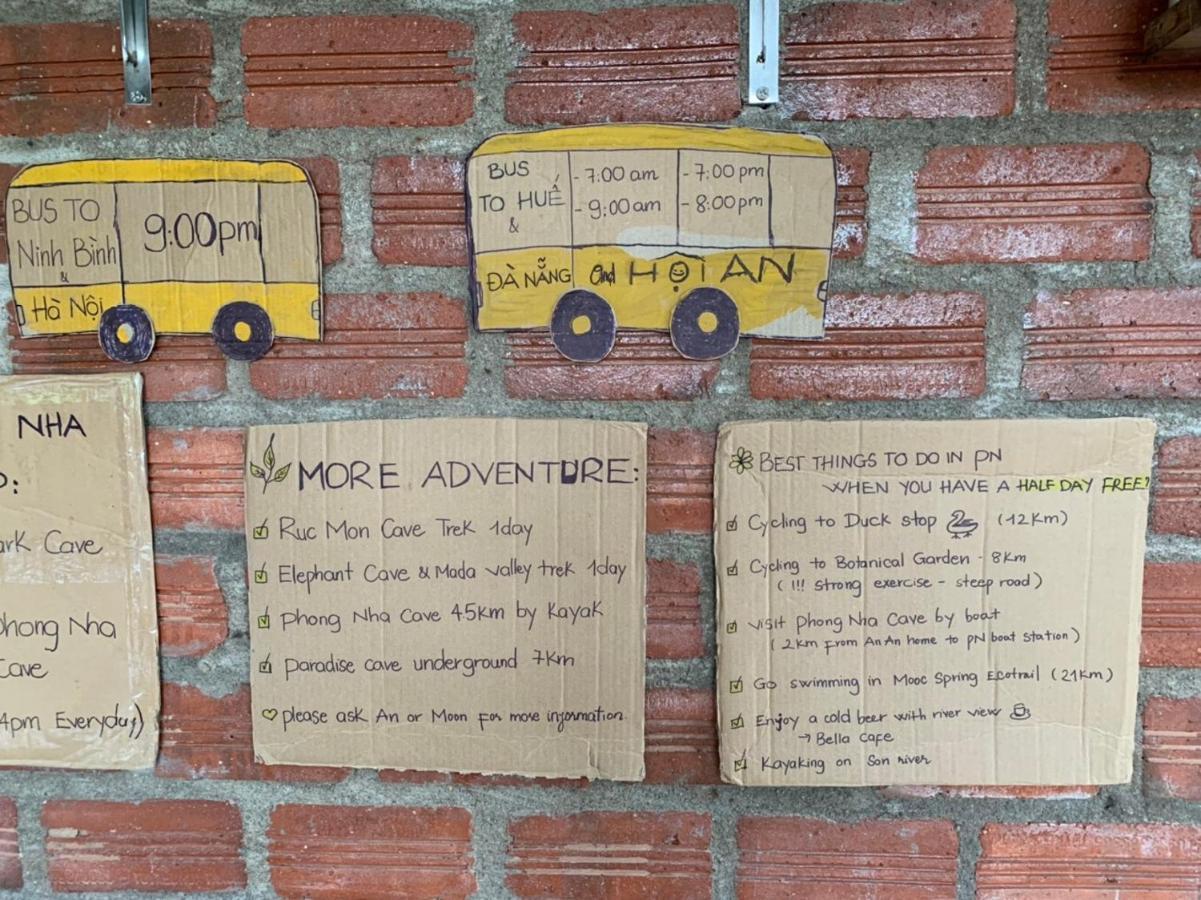 BUS TO
Ninh Bình
&
Hà Nội
9:00pm
BUS
TO HUẾ
&
ĐÀ NẴNG and HỘI AN
- 7:00 am
- 9:00 am
- 7:00 pm
- 8:00 pm
NHA
ark Cave
phong Nha
Cave
4pm Everyday)
MORE ADVENTURE:
Ruc Mon Cave Trek 1day
Elephant Cave & Mada valley trek 1day
Phong Nha Cave 45km by Kayak
paradise cave underground 7km
please ask An or Moon for more information
BEST THINGS TO DO IN PN
WHEN YOU HAVE A HALF DAY FREE?
Cycling to Duck stop (12km)
Cycling to Botanical Garden - 8km
( !!! strong exercise - steep road )
visit phong Nha Cave by boat
( 2km from An An home to PN boat station )
Go swimming in Mooc Spring Ecotrail (21km)
Enjoy a cold beer with river view
→ Bella Cafe
Kayaking on Son river